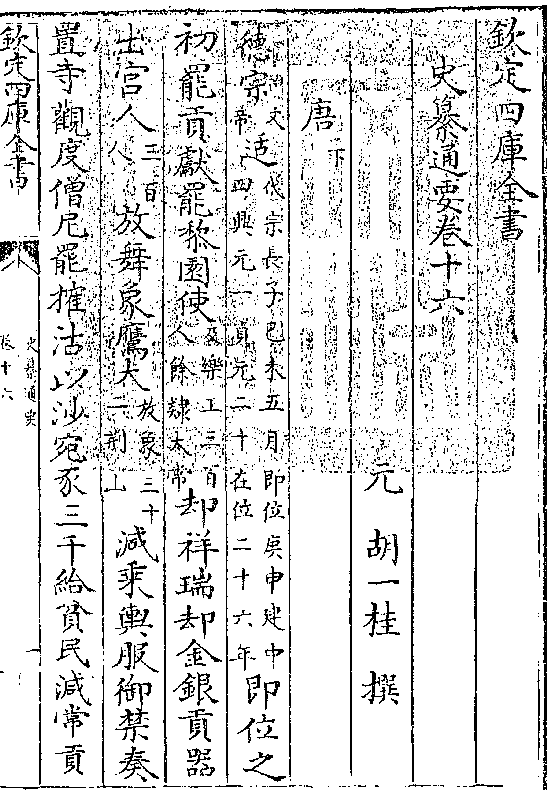 欽定四庫全書
史纂通要卷十六
元 胡一桂 撰
唐下
德宗文帝适代宗長子己未五月即位庚申建中四興元一貞元二十在位二十六年即位之
初罷貢獻罷棃園使及樂工三百人餘隸太常却祥瑞却金銀貢器
出宮人三百人放舞象鷹犬放象三十二荆山減乗輿服御禁奏
置寺觀度僧尼罷榷沽以沙宛豕三千給貧民減常貢
欽定四庫全書
史纂通要
卷十六
一